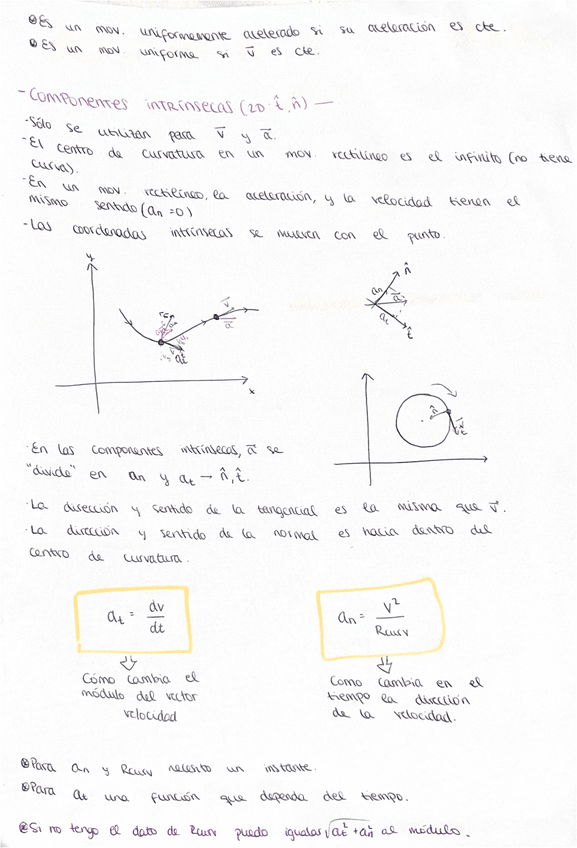 Es un mov. uniformemente acelerado si su aceleración es cte.
Es un mov. uniforme si v⃗ es cte.
- COMPONENTES INTRÍNSECAS (2D t̂, n̂) —
- Sólo se utilizan para v⃗ y a⃗.
- El centro de curvatura en un mov. rectilíneo es el infinito (no tiene
curva).
- En un mov. rectilíneo, la aceleración, y la velocidad tienen el
mismo sentido (an = 0)
- Las coordenadas intrínsecas se mueven con el punto.
y
x
v⃗
a⃗
at
n̂
an
a⃗
at
t̂
· En las componentes intrínsecas, a⃗ se
"divide" en an y at → n̂, t̂.
· La dirección y sentido de la tangencial es la misma que v⃗.
· La dirección y sentido de la normal es hacia dentro del
centro de curvatura.
at = dv/dt
an = v²/Rcurv
Cómo cambia el
módulo del vector
velocidad
Como cambia en el
tiempo la dirección
de la velocidad.
Para an y Rcurv necesito un instante.
Para at una función que dependa del tiempo.
Si no tengo el dato de Rcurv puedo igualar √at² + an² al módulo.